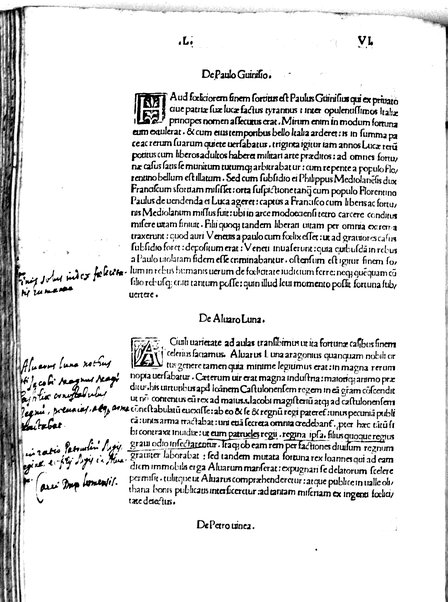 .L. VI.
De Paulo Guinisio.
HAud foeliciorem finem sortitus est Paulus Guinisius qui ex priuato
ciue patriæ suæ lucæ factus tyrannus: inter opulentissimos Italiæ
principes nomen assecutus erat. Mirum enim in modum fortuna
eum exulerat. & cum eius temporibus bello Italia arderet: is in summa pa
ce ac rerum suarum quiete uersabatur. triginta igitur tam annos Lucæ rerū
potitus cum liberos adultos haberet militari arte præditos: ad omnes fortu
næ casus satis se munitum tutumq; arbitrabatur: cum repente a populo flo
rentino bellum est illatum. Sed cum subsidio ei Philippus Mediolanēsis dux
Franciscum sfortiam misisset: orta suspactione tanq̃ cum populo Florentino
Paulus de uendenda ei Luca ageret: captus a Francisco cum liberis ac fortu
nis Mediolanum missus fuit: ubi in arce modoeciensi tetro carcere conditus
misere uitam finiuit. Filii quoq; tandem liberati uitam per omnia exerra
traxerunt: quod auri Venetiis a paulo cum foelix esset: ut ad grauiores casus
subsidio foret: depositum erat: Veneti inuaserunt: quia quibusdā in rebus
a Paulo uiolatam fidem esse criminabantur. ostensum est igitur finem so/
lum in rebus humanis uerum de foelicitate iudicium ferre: neq; quéquam cū
filio rebusq; cras tantum posse: quin illud leui momento possit fortuna sub/
uertere.
finis solus iudex foelicita
tis humanæ
De Aluaro Luna.
ACiuili uarietate ad aulas transibimus ut ita fortunæ casibus finem
celerius faciamus. Aluarus Luna aragonius quanquam nobili or
tus genere tamen quia minime legitimus erat: in magna rerum
inopia uersabatur. Cæterum uir erat magna industria: maioriq; animo præ
ditus. his uirtutibus apd Ioānem Castulonensem regem in eā gratiā cōscendit
ut nō contentus eū rex ad maius.s. Iacobi magisteriū atq; ad castulonensem
cōnestabulatū euexisse: ab eo & se & regnū regi pateret: unus pecuniā publi
cā: unus arma tractabat: uni etiā secreta omnia credebant᷑. pter hæc tātū si
bi contraxit inuidiæ: ut eum patrudes regii, regina ipsa, filius quoque regius
graui odio insectarentur. Traq; ob eam rem per factiones diuisum regnum
grauiter laborabat: sed tandem mutata fortuna rex Ioannes qui ad eam
diem immobilis erga Aluarum manserat: expugnari se delatorum scelere
permisit. iussitque ut Aluarus comprehenderetur: atque publice in ualle oli/
thana bonis publicatis interficeretur. ad tantam miseriam ex ingenti foelici/
tate deiectus.
Aluarus Luna nothus
De Petro uinea.